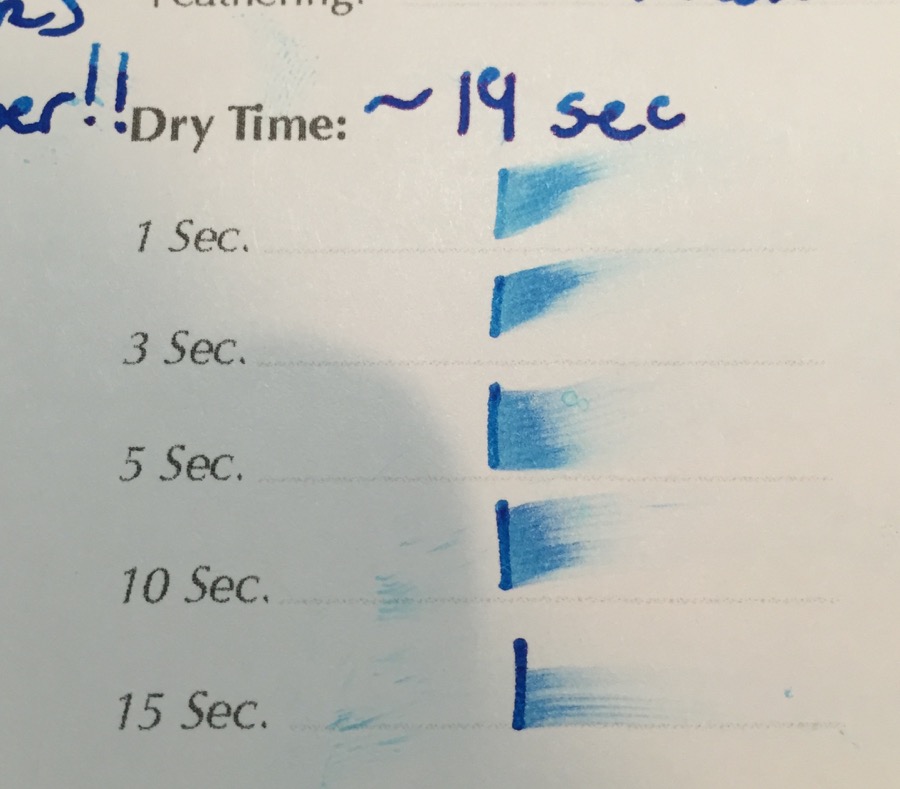 Feathering:
er!! Dry Time: ~ 19 sec
1 Sec.
3 Sec.
5 Sec.
10 Sec.
15 Sec.